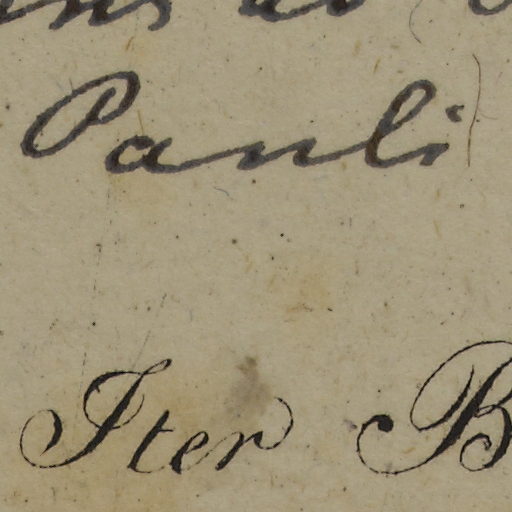 Pauli
Iter B